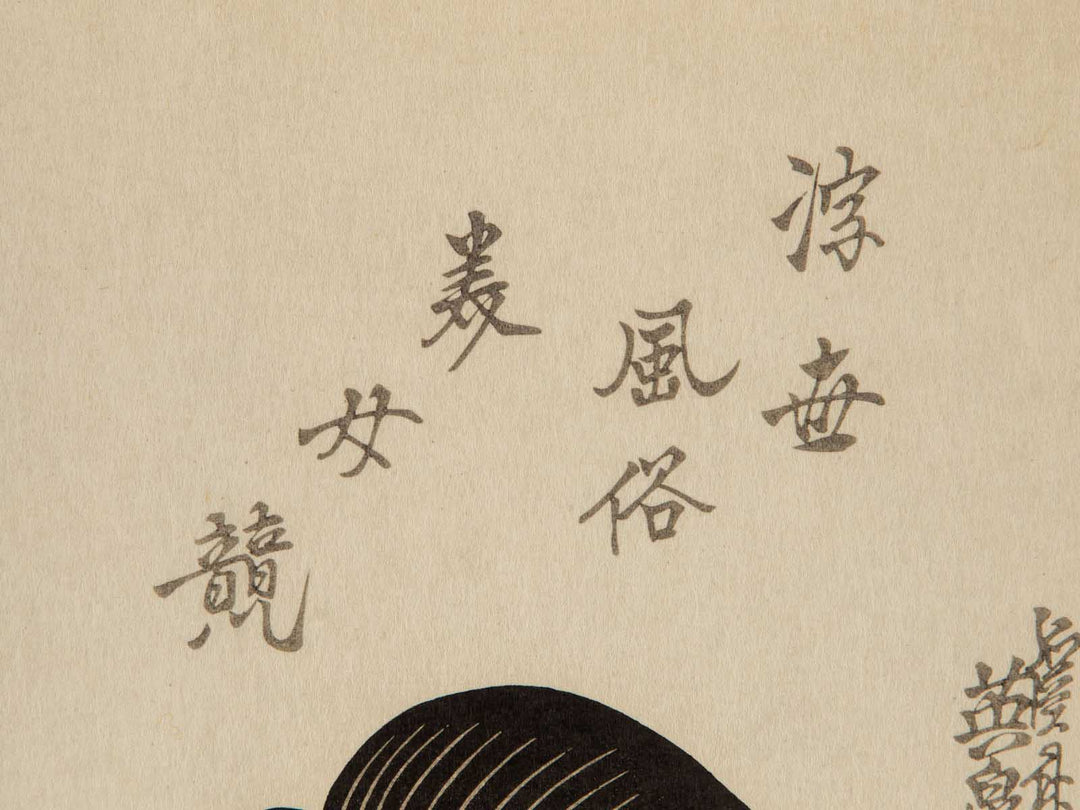 浮世
風俗
美女
競